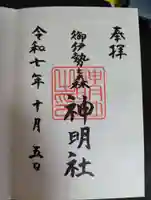 奉拝
御伊勢の森 神明社
令和七年十月五日